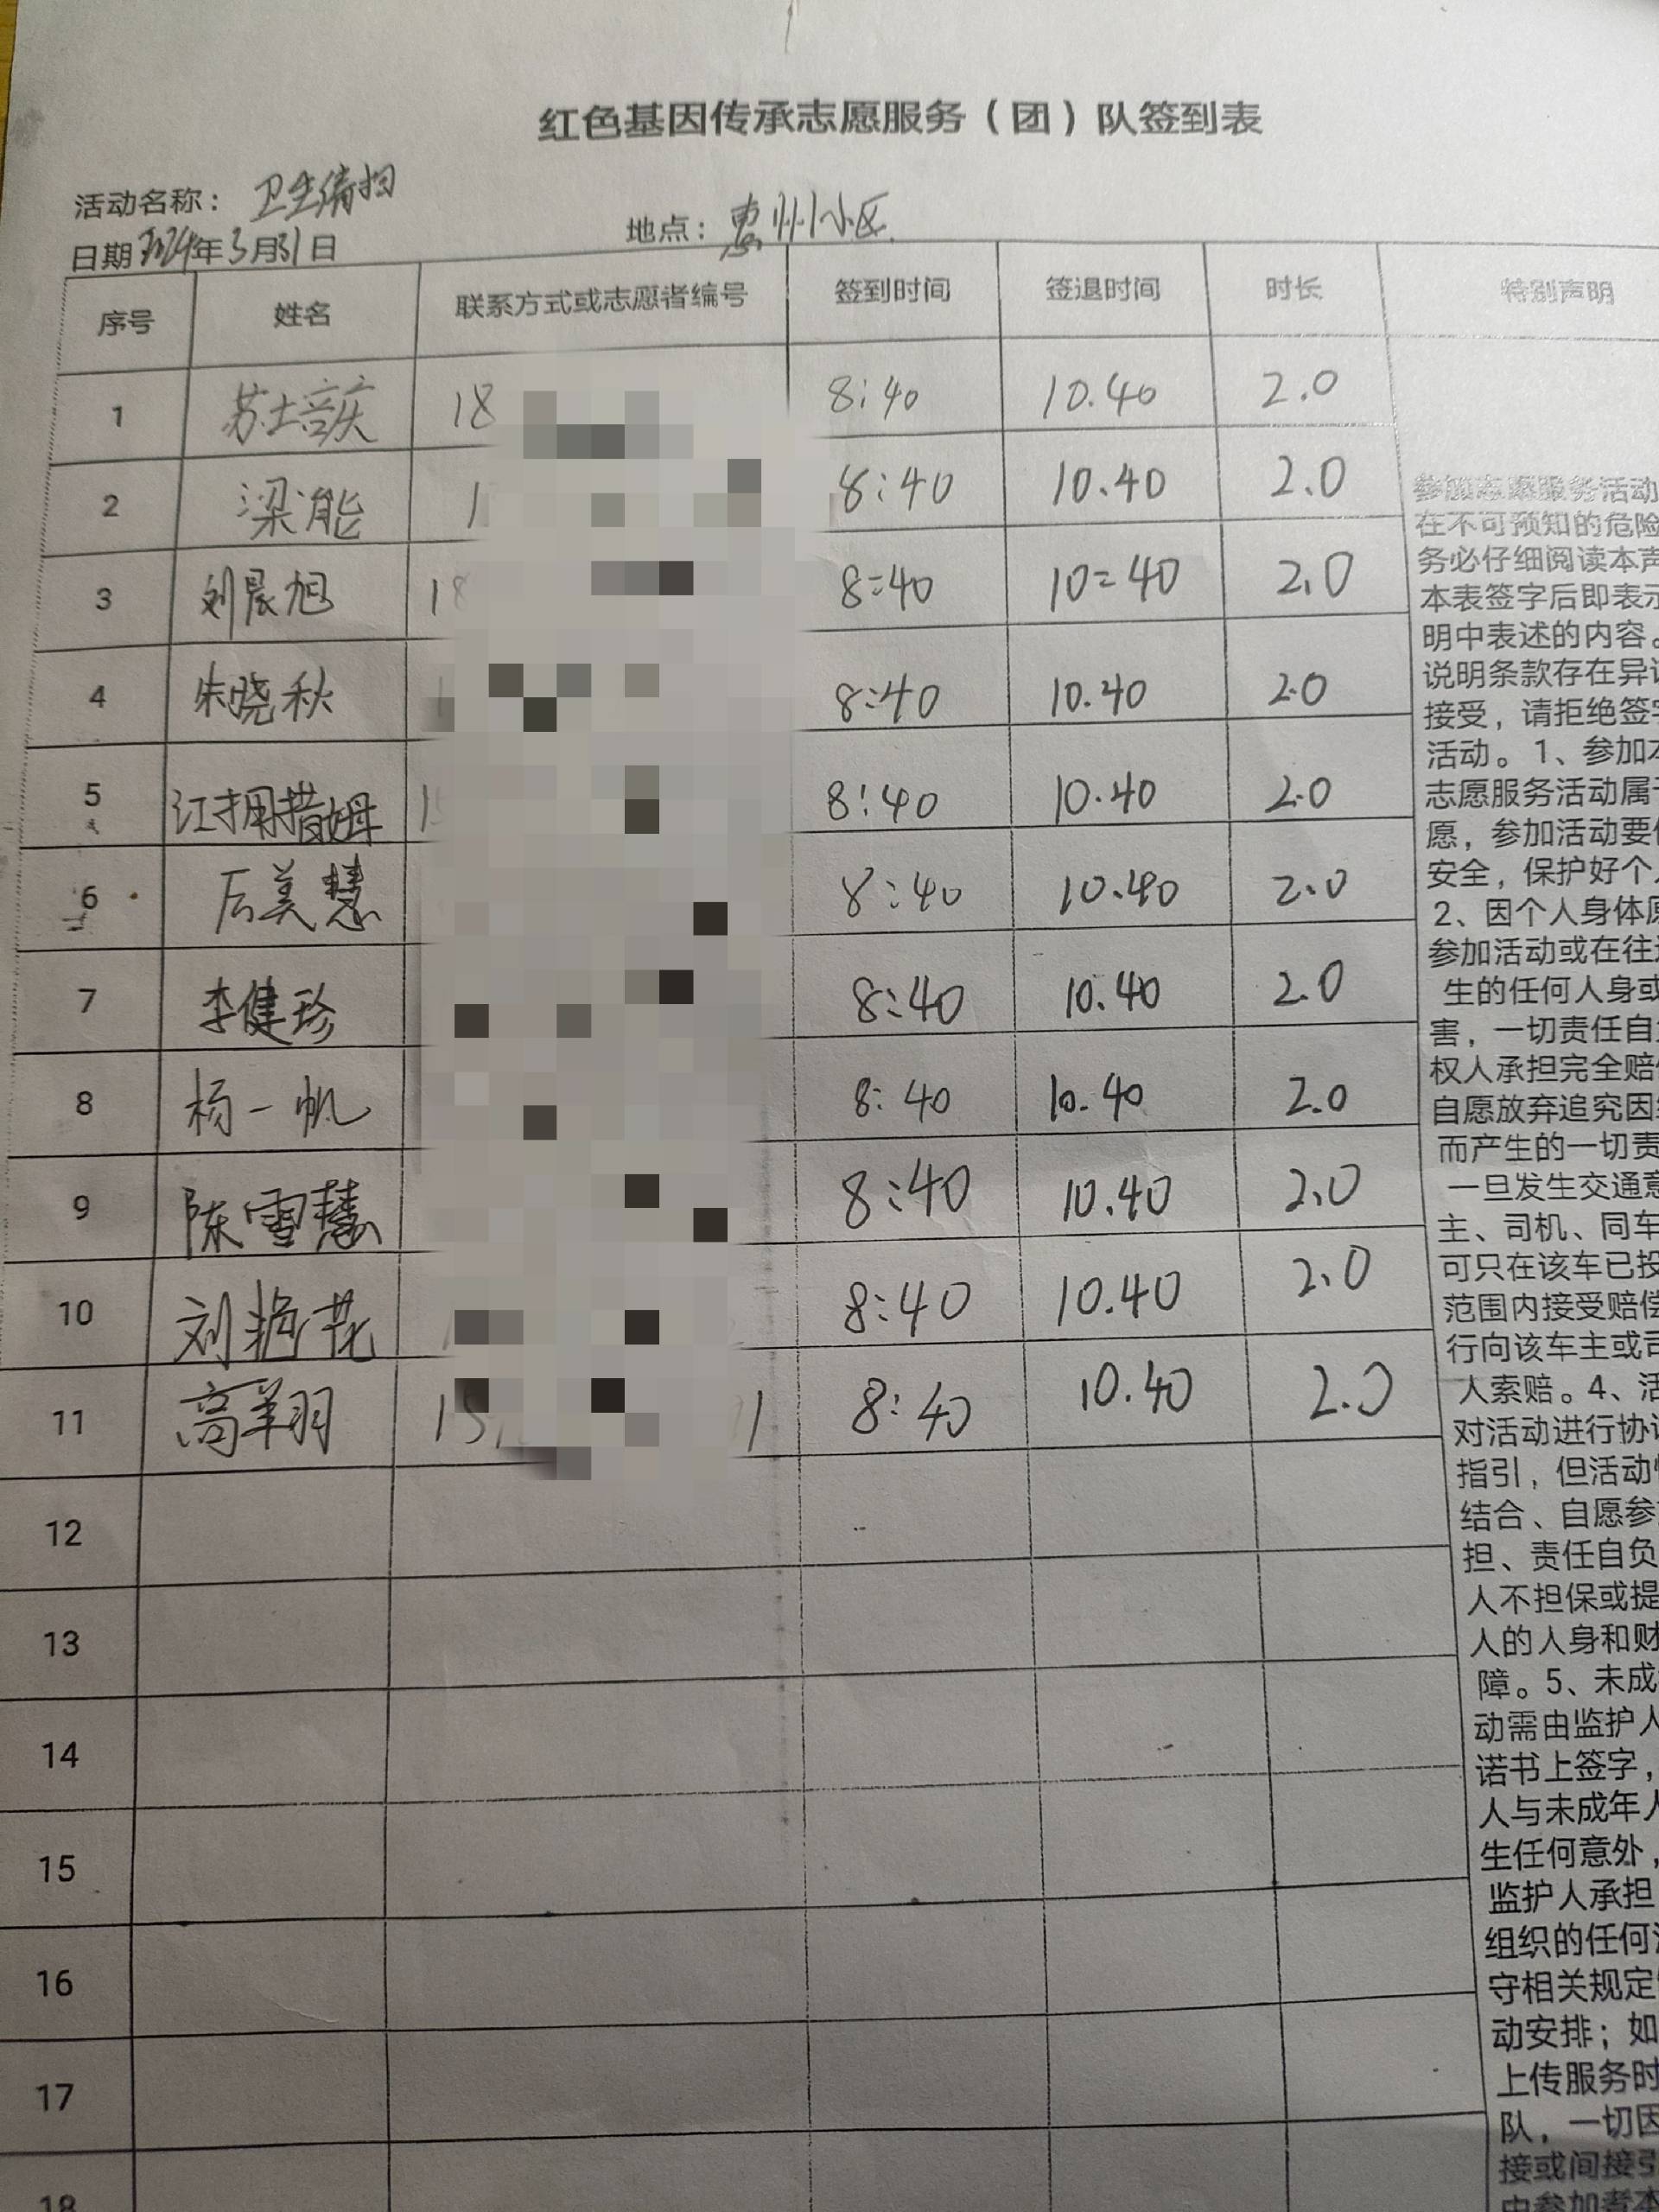 红色基因传承志愿服务（团）队签到表
活动名称：卫生清扫
日期2024年3月31日 地点：惠州小区
序号 姓名 联系方式或志愿者编号 签到时间 签退时间 时长 特别声明
1 18 8:40 10.40 2.0
2 梁能 1 8:40 10.40 2.0
3 刘晨旭 18 8:40 10:40 2.0
4 朱晓秋 1 8:40 10.40 2.0
5 江拥措姆 15 8:40 10.40 2.0
6 后美慧 8:40 10.40 2.0
7 李健珍 8:40 10.40 2.0
8 杨一帆 8:40 10.40 2.0
9 陈雪慧 8:40 10.40 2.0
10 刘艳花 8:40 10.40 2.0
11 高翔羽 15 1 8:40 10.40 2.0
12
13
14
15
16
17
18
参加志愿服务活动
在不可预知的危险
务必仔细阅读本声
本表签字后即表示
明中表述的内容。
说明条款存在异议
接受，请拒绝签字
活动。1、参加本
志愿服务活动属于
愿，参加活动要
安全，保护好个人
2、因个人身体原
参加活动或在往返
生的任何人身或
害，一切责任自
权人承担完全赔偿
自愿放弃追究因
而产生的一切责
一旦发生交通意
主、司机、同车
可只在该车已投
范围内接受赔偿
行向该车主或司
人索赔。4、活
对活动进行协议
指引，但活动
结合、自愿参
担、责任自负
人不担保或提
人的人身和财
障。5、未成
动需由监护人
诺书上签字，
人与未成年人
生任何意外，
监护人承担
组织的任何
守相关规定
动安排；如
上传服务时
队，一切因
接或间接引